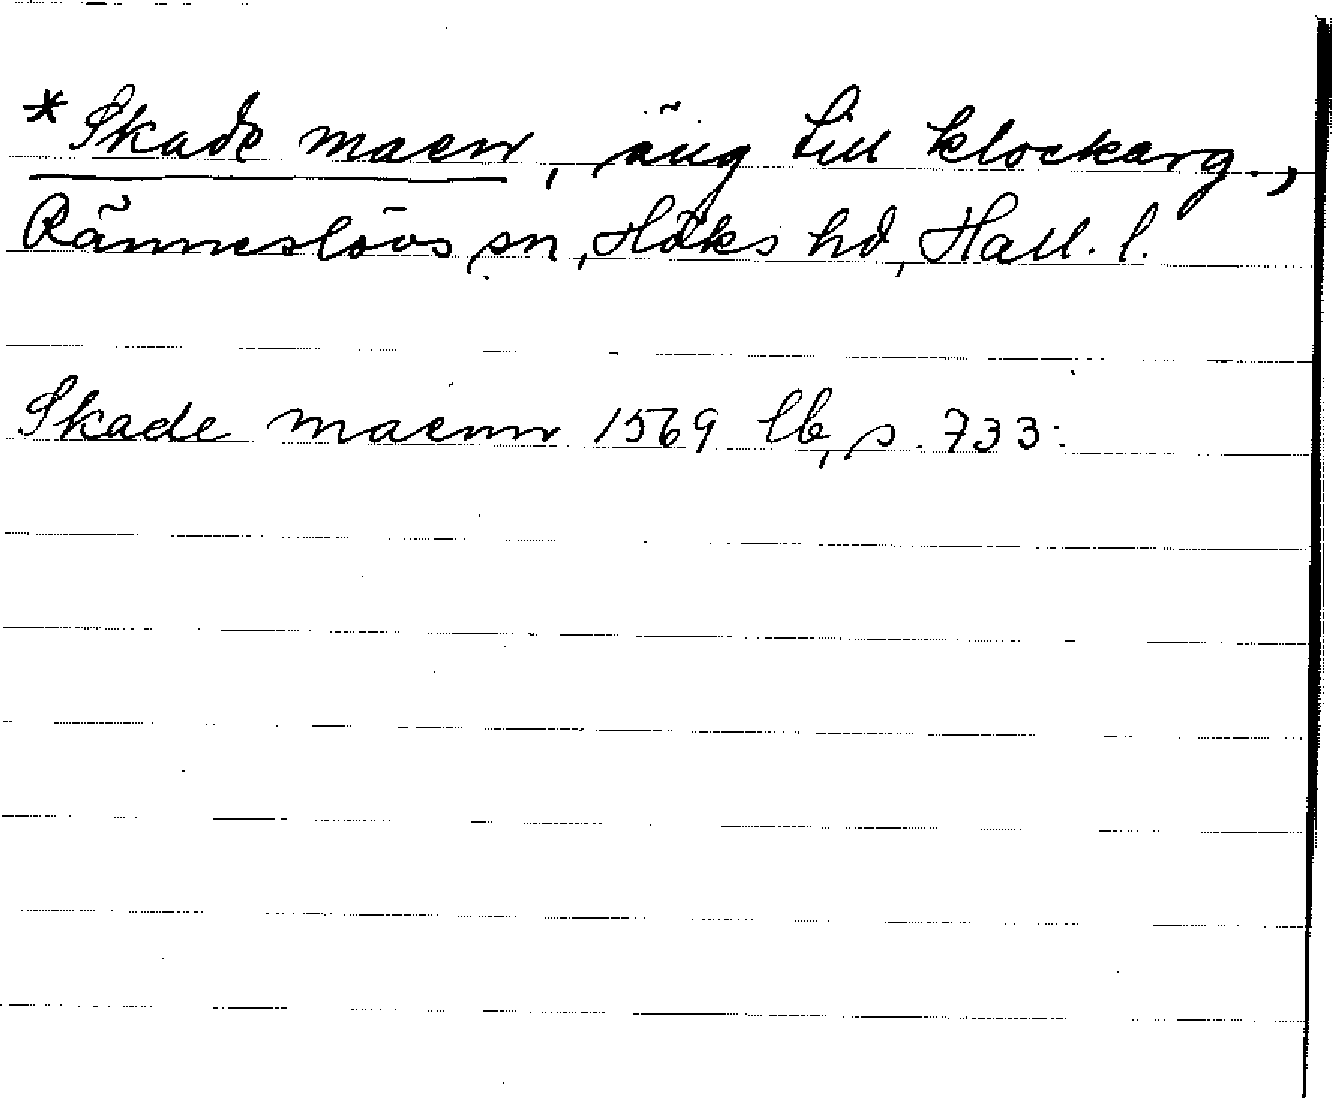 *Skade maen, äng till klockarg.,
Ränneslövs sn, Höks hd, Hall. l.
Skade maenn 1569 lb, s. 733.